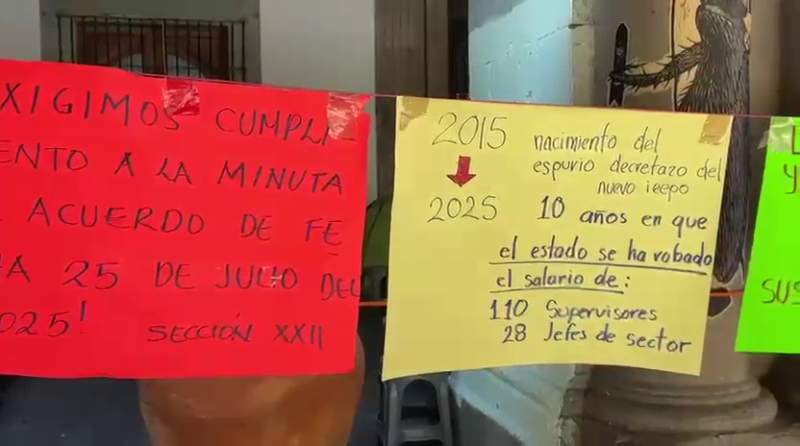 XIGIMOS CUMPLI-
ENTO A LA MINUTA
ACUERDO DE FE
A 25 DE JULIO DEL
025! SECCIÓN XXII
2015 nacimiento del
espurio decretazo del
nuevo ieepo
2025 10 años en que
el estado se ha robado
el salario de:
110 Supervisores
28 Jefes de sector
Y
SUS